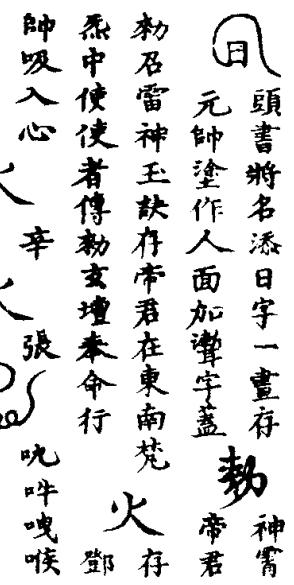 頭書將名添日字一畫存
神霄
日
元帥塗作人面加聻字蓋
勅
帝君
勅召雷神玉訣存帝君在東南梵
火
存
炁中使使者傳勅玄壇奉命行
鄧
帥吸入心
辛
張
吽
喉